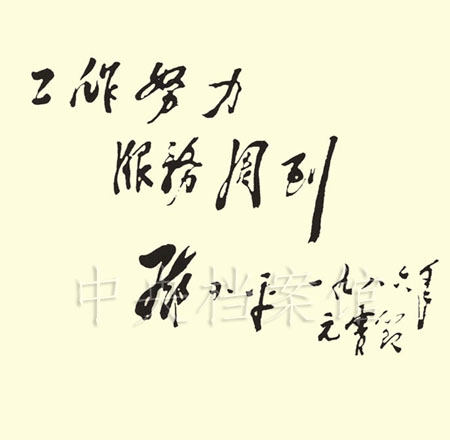 工作努力
服務周到
邓小平 一九八六年
元宵節
中央档案馆